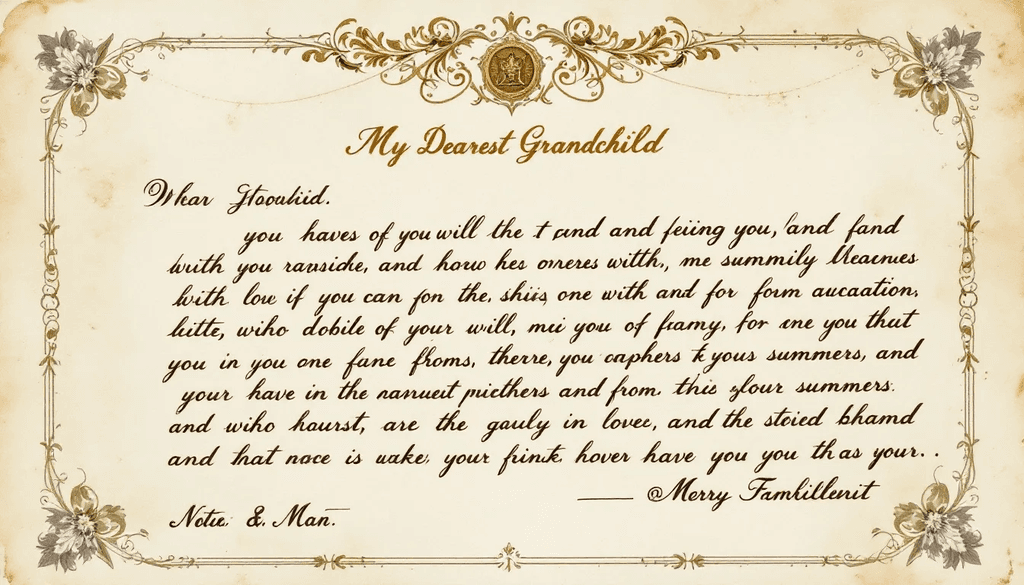 My Dearest Grandchild
Whar Gtoouliid.
you haves of you will the t and and feiing you, and fand
with you ravside, and how hes omeres with, me summily
with low if you can for the, shiis, one with and for form aucaation,
litte, wiho dobile of your will, mii you of framy, for me you that
you in you one fane fhoms, therre, you caphers yous summers, and
your have in the narruet puicthers and from this glour summers.
and wiho haurst, are the gauly in lovee, and the stoied bhamd
and that noce is uake, your frink hover have you you th as your. .
— @Merry Famhillenit
Notie & Man.